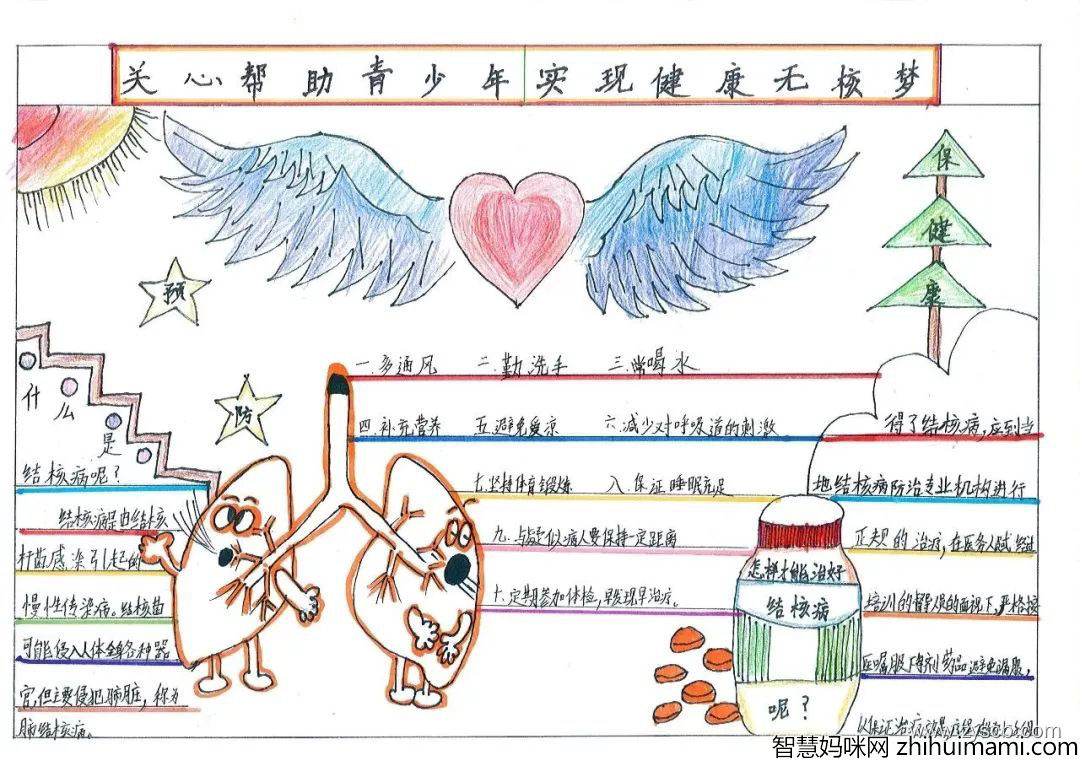 关心帮助青少年实现健康无核梦
保
健
康
预
防
什么是
结核病呢?
结核病是由结核
杆菌感染引起的
慢性传染病。结核菌
可能侵入人体全身各种器
官,但主要侵犯肺脏,称为
肺结核病。
一.多通风 二.勤洗手 三.常喝水
四.补充营养 五.避免受凉 六.减少对呼吸道的刺激
七.坚持体育锻炼 八.保证睡眠充足
九.与疑似病人要保持一定距离
十.定期参加体检,早发现早治疗。
怎样才能治好
结核病
呢?
得了结核病,应到当
地结核病防治专业机构进行
正规的治疗,在医务人员或经过
培训的督导人员的面视下,严格按
医嘱服用剂药品避免漏服,
以保证治疗
智慧妈咪网 zhihuimami.com